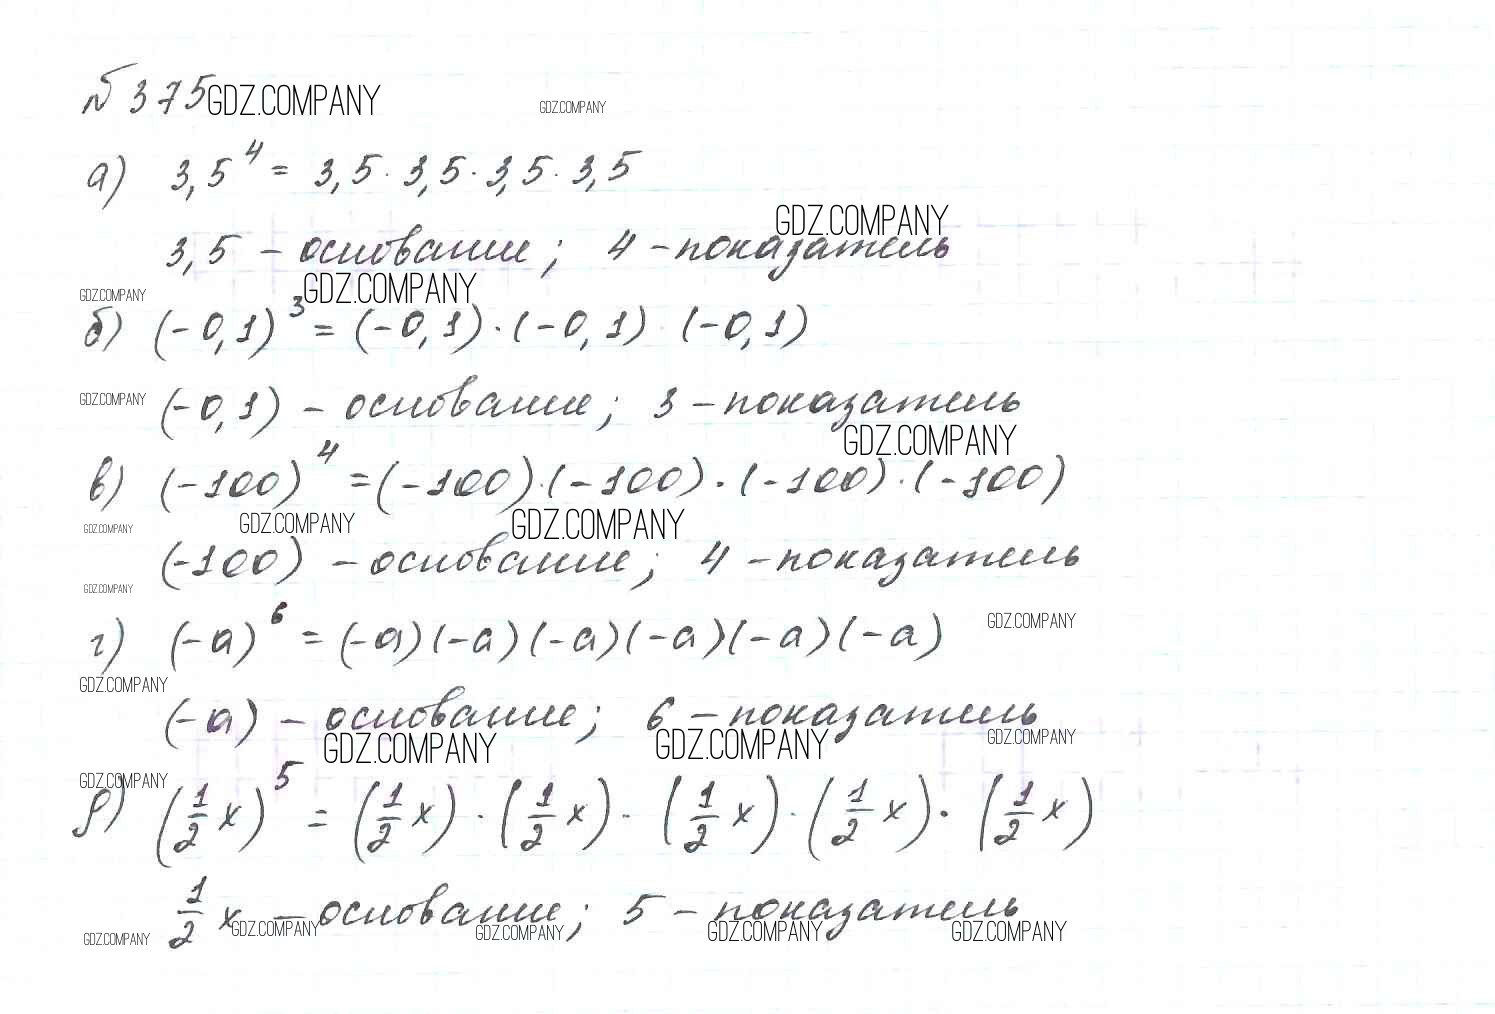 № 375 GDZ.COMPANY GDZ.COMPANY
а) 3,5⁴ = 3,5 · 3,5 · 3,5 · 3,5
GDZ.COMPANY
3,5 – основание; 4 – показатель
GDZ.COMPANY GDZ.COMPANY
б) (-0,1)³ = (-0,1) · (-0,1) · (-0,1)
GDZ.COMPANY (-0,1) – основание; 3 – показатель
GDZ.COMPANY
в) (-100)⁴ = (-100) · (-100) · (-100) · (-100)
GDZ.COMPANY GDZ.COMPANY GDZ.COMPANY
(-100) – основание; 4 – показатель
GDZ.COMPANY
г) (-a)⁶ = (-a)(-a)(-a)(-a)(-a)(-a) GDZ.COMPANY
GDZ.COMPANY
(-a) – основание; 6 – показатель
GDZ.COMPANY GDZ.COMPANY GDZ.COMPANY
GDZ.COMPANY
д) (1/2 x)⁵ = (1/2 x) · (1/2 x) · (1/2 x) · (1/2 x) · (1/2 x)
1/2 x – основание; 5 – показатель
GDZ.COMPANY GDZ.COMPANY GDZ.COMPANY GDZ.COMPANY GDZ.COMPANY